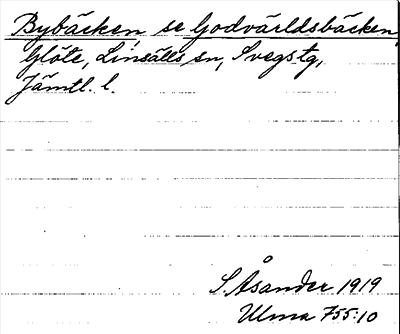 Bybäcken, se Godvärldsbäcken
Glöte, Linsälls sn, Svegs tg,
Jämtl. l.
S. Åsander 1919
Ulma 755:10